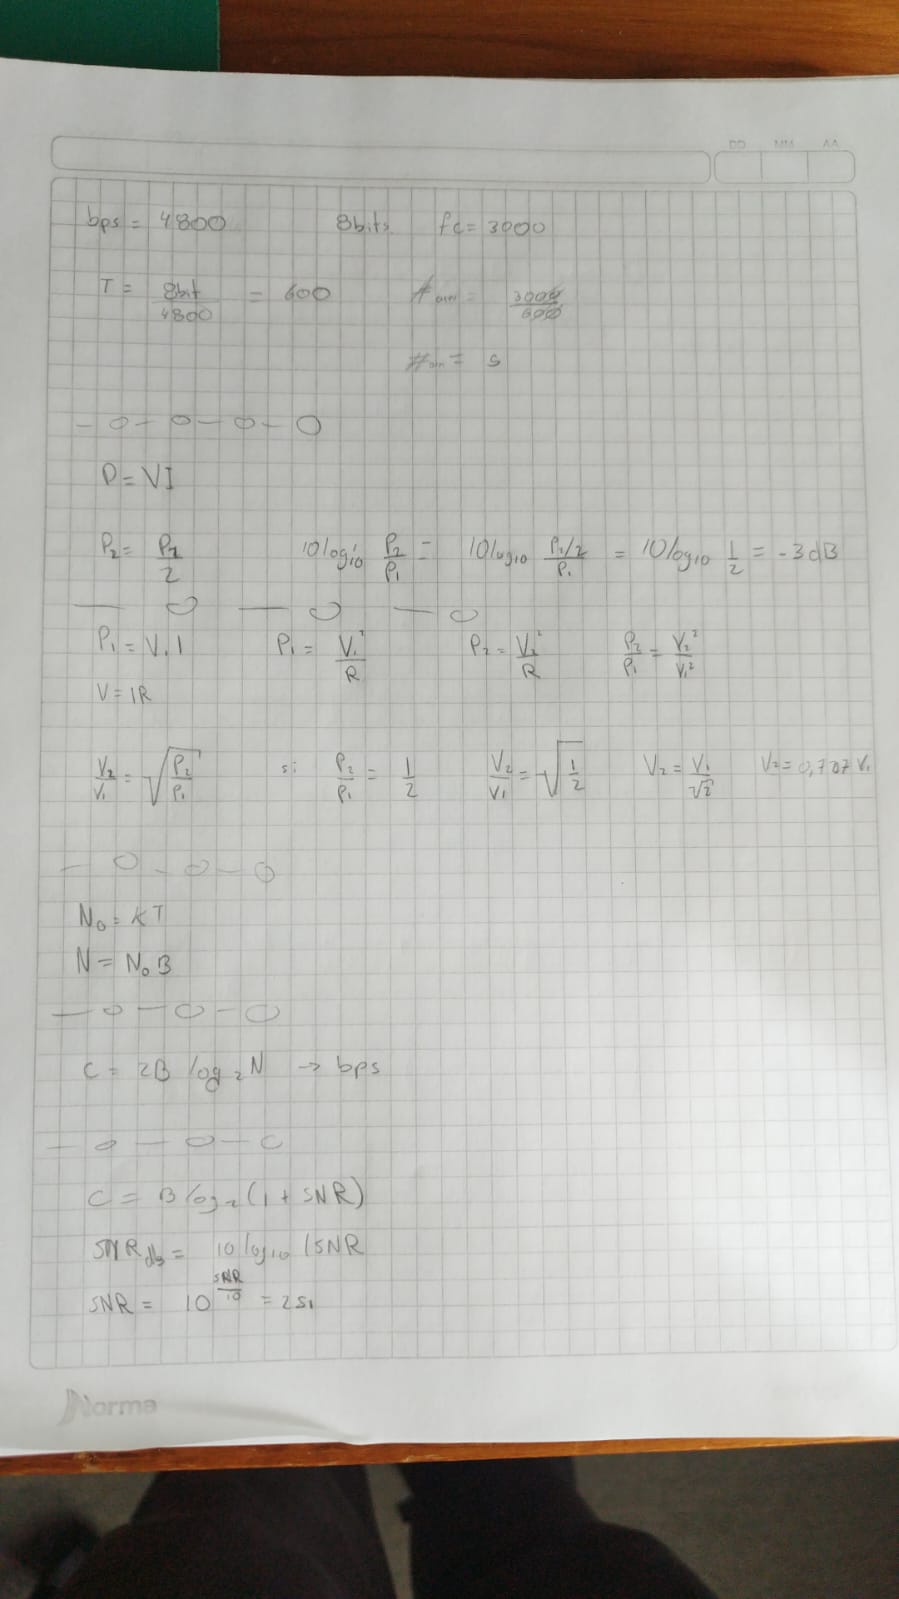 DD MM AA
bps = 4800 8bits fc = 3000
T = 8bit/4800 = 600 #arm = 3000/600
#arm = 5
P = VI
P2 = P1/2 10log10 P2/P1 = 10log10 P1/2/P1 = 10log10 1/2 = -3dB
P1 = V1 I P1 = V1²/R P2 = V2²/R P2/P1 = V2²/V1²
V = IR
V2/V1 = √P2/P1 si P2/P1 = 1/2 V2/V1 = √1/2 V2 = V1/√2 V2 = 0,707 V1
N0 = KT
N = N0 B
C = 2B log2 N → bps
C = B log2 (1 + SNR)
SNR db = 10 log10 (SNR
SNR = 10^SNR/10 = 251
Norma